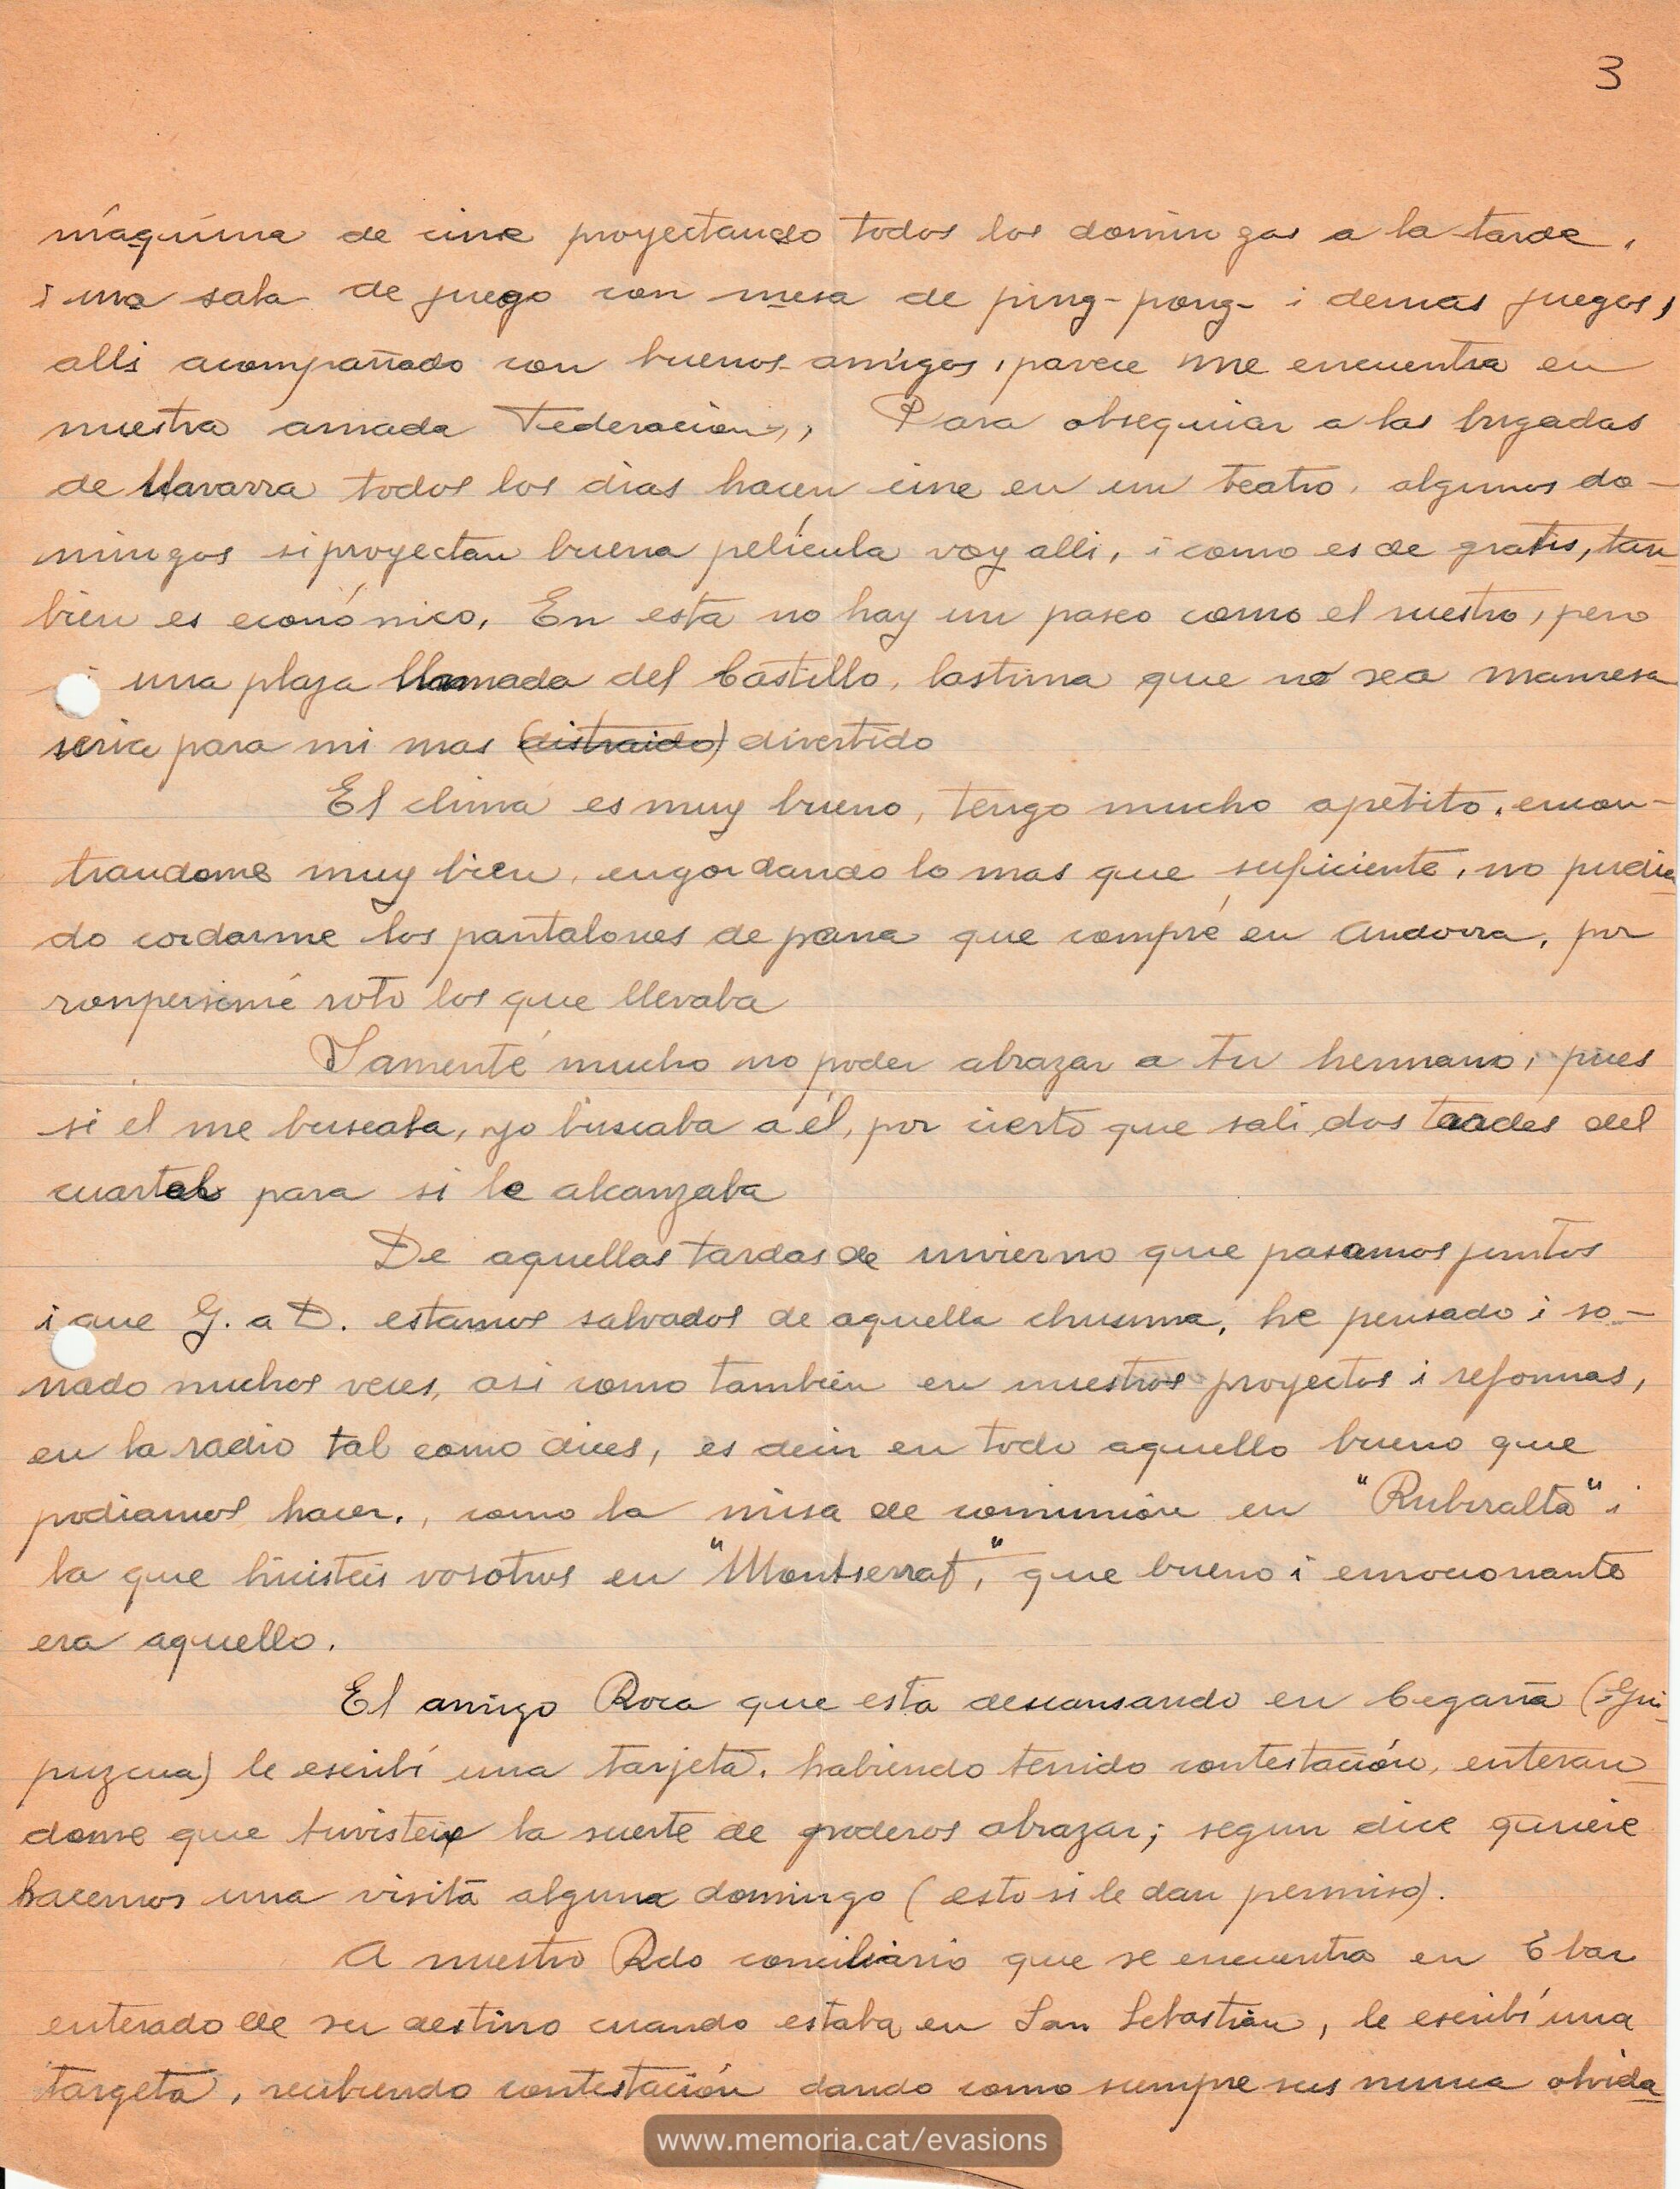 3
máquina de cine proyectando todos los domingos a la tarde,
i una sala de juego con mesa de ping-pong- i demas juegos,
alli acompañado con buenos amigos, parece me encuentra en
nuestra amada Federación,, Para obsequiar a las brigadas
de Navarra todos los dias hacen cine en un teatro, algunos do-
mingos si proyectan buena película voy alli, i como es de gratis, tan-
bien es económico, En esta no hay un paseo como el nuestro, pero
una plaza llamada del Castillo, lastima que no sea manresa
seria para mi mas (distraido) divertido
El clima es muy bueno, tengo mucho apetito, encon-
trandome muy bien, engordando lo mas que suficiente, no pudien
do cordarme los pantalones de pana que compré en Andorra, por
ronperseme roto los que llevaba
Lamenté mucho no poder abrazar a tu hermano, pues
si el me buscaba, yo buscaba a él, por cierto que sali dos tardes del
cuartel para si le alcanzaba
De aquellas tardas de invierno que pasamos juntos
i que G. a D. estamos salvados de aquella chusma, he pensado i so-
nado muchos veces, asi como tambien en nuestros proyectos i reformas,
en la radio tal como dices, es decir en todo aquello bueno que
podiamos hacer., como la misa de comunión en "Rubiralta" i
la que hicisteis vosotros en "Montserrat," que bueno i emocionante
era aquello.
El amigo Roca que esta descansando en Cegama (Gui-
puzcua) le escribí una tarjeta, habiendo tenido contestación, enteran-
dome que tuvisteis la suerte de poderos abrazar; segun dice quiere
hacernos una visita alguna domingo (esto si le dan permiso).
A nuestro Rdo conciliario que se encuentra en Eibar
enterado de su destino cuando estaba en San Sebastián, le escribí una
targeta, recibiendo contestación dando como siempre sus nunca olvida-
www.memoria.cat/evasions